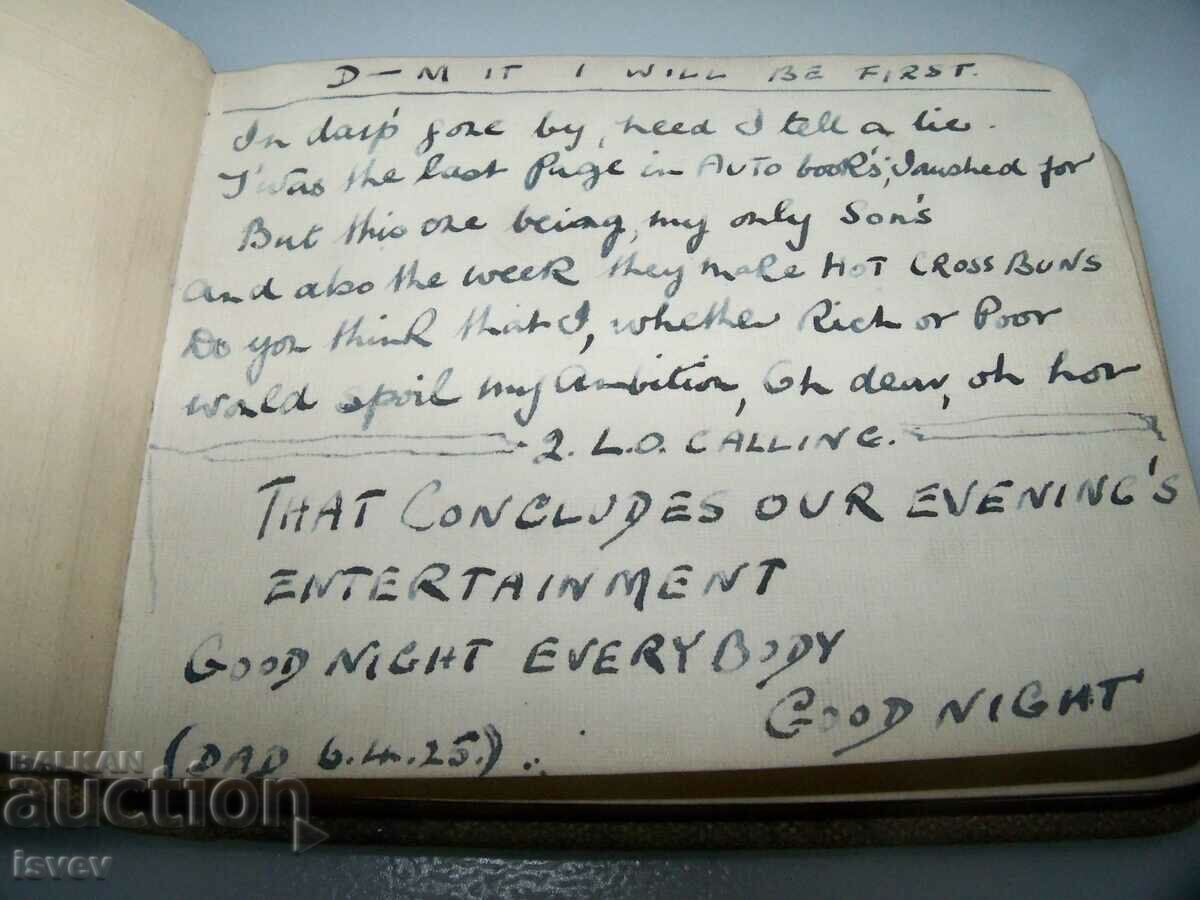 D-M IT I WILL BE FIRST.
In day's gone by, need I tell a lie.
T'was the last Page in AUTO book's; I rushed for
But this one being, my only Son's
And also the week they make HOT CROSS BUNS
Do you think that I, whether Rich or Poor
would spoil my Ambition, Oh dear, oh hor
2. L.O. CALLING.
THAT CONCLUDES OUR EVENING'S
ENTERTAINMENT
GOOD NIGHT EVERYBODY
GOOD NIGHT
(DAD 6.4.25.)
BALKAN
auction
isvev